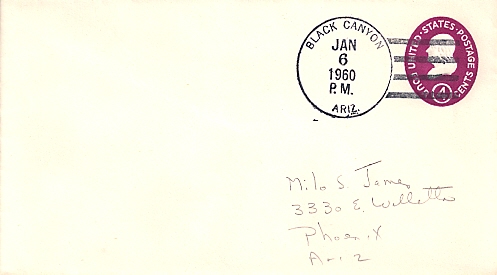 BLACK CANYON
JAN
6
1960
P.M.
ARIZ.
UNITED·STATES·POSTAGE
FOUR 4 CENTS
Milo S. James
3330 E. Willetta
Phoenix
Ariz